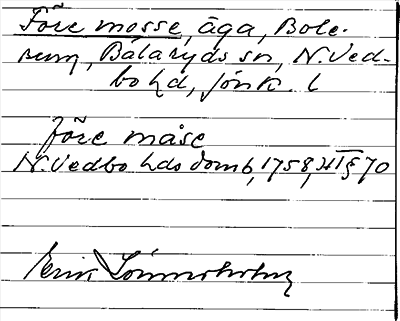 Före mosse, äga, Bole-
rum, Bälaryds sn, N. Ved-
bo hd, Jönk. l
Före måse
N. Vedbo hds domb, 1758, HT § 70
Erik